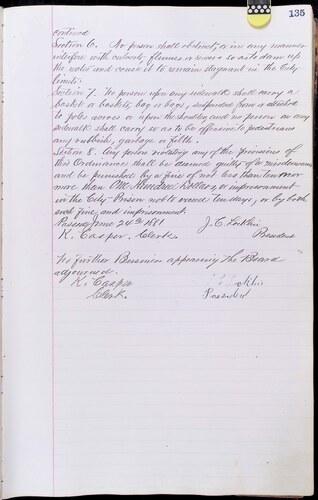 135
continued
Section 6. No person shall obstruct, or in any manner
interfere with culverts, flumes or sewers so as to dam up
the water and cause it to remain stagnant in the City
limits.
Section 7. No person upon any sidewalk shall carry a
basket or baskets, bag or bags, suspended from or attached
to poles across or upon the shoulders and no person on any
sidewalk shall carry so as to be offensive to pedestrians
any rubbish, garbage or filth.
Section 8. Any person violating any of the provisions of
this Ordinance shall be deemed guilty of a misdemeanor
and be punished by a fine of not less than ten nor
more than One Hundred Dollars, or imprisonment
in the City Prison not to exceed Ten days, or by both
such fine and imprisonment.
Passed June 24th 1881
K. Casper, Clerk. President
No further Business appearing the Board
adjourned.
K. Casper
Clerk. President